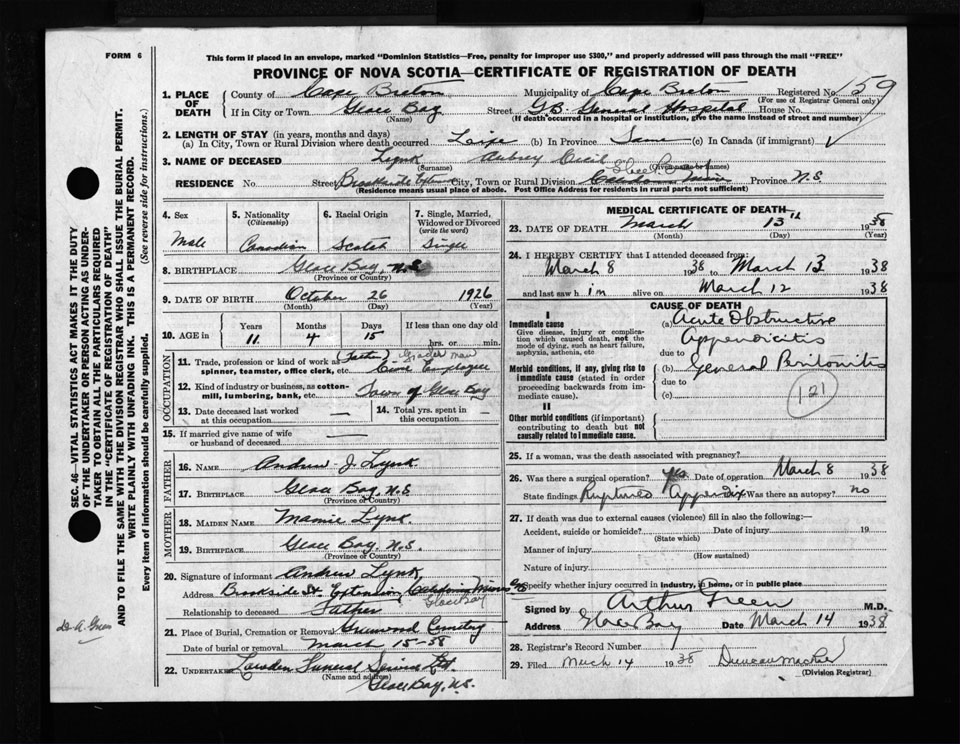 FORM 6
This form if placed in an envelope, marked "Dominion Statistics—Free, penalty for improper use $300," and properly addressed will pass through the mail "FREE"
PROVINCE OF NOVA SCOTIA—CERTIFICATE OF REGISTRATION OF DEATH
SEC. 46—VITAL STATISTICS ACT MAKES IT THE DUTY
OF THE UNDERTAKER OR PERSON ACTING AS UNDER-
TAKER TO OBTAIN ALL THE PARTICULARS REQUIRED
IN THE "CERTIFICATE OF REGISTRATION OF DEATH"
AND TO FILE THE SAME WITH THE DIVISION REGISTRAR WHO SHALL ISSUE THE BURIAL PERMIT.
WRITE PLAINLY WITH UNFADING INK. THIS IS A PERMANENT RECORD.
Every item of information should be carefully supplied. (See reverse side for instructions.)
1. PLACE OF DEATH
County of Cape Breton Municipality of Cape Breton Registered No. 59
(For use of Registrar General only)
If in City or Town Glace Bay Street G.B. General Hospital House No.
(Name) (If death occurred in a hospital or institution, give the name instead of street and number)
2. LENGTH OF STAY (in years, months and days)
(a) In City, Town or Rural Division where death occurred Life (b) In Province Same (c) In Canada (if immigrant) ✓
3. NAME OF DECEASED Lynk Aubrey Cecil
(Surname) (Given name or names)
Glace Bay
RESIDENCE No. Street Brookside Extension City, Town or Rural Division Caledonia Mines Province N.S
(Residence means usual place of abode. Post Office Address for residents in rural parts not sufficient)
4. Sex
Male
5. Nationality (Citizenship)
Canadian
6. Racial Origin
Scotch
7. Single, Married, Widowed or Divorced (write the word)
Single
8. BIRTHPLACE Glace Bay, N.S
(Province or Country)
9. DATE OF BIRTH October 26 1926
(Month) (Day) (Year)
10. AGE in Years Months Days If less than one day old
11 4 15 hrs. or min.
OCCUPATION
11. Trade, profession or kind of work as (Father)
spinner, teamster, office clerk, etc. Civic Employee
12. Kind of industry or business, as cotton-
mill, lumbering, bank, etc. Town of Glace Bay
13. Date deceased last worked at this occupation —
14. Total yrs. spent in this occupation —
15. If married give name of wife or husband of deceased —
FATHER
16. NAME Andrew J. Lynk
17. BIRTHPLACE Glace Bay, N.S
(Province or Country)
MOTHER
18. MAIDEN NAME Mamie Lynk.
19. BIRTHPLACE Glace Bay, N.S.
(Province or Country)
20. Signature of informant Andrew Lynk
Address Brookside St. Extension, Caledonia Mines
Glace Bay
Relationship to deceased Father
21. Place of Burial, Cremation or Removal Greenwood Cemetery
Date of burial or removal March 15-38
22. UNDERTAKER Funeral Service Ltd.
(Name and address)
Glace Bay, N.S.
MEDICAL CERTIFICATE OF DEATH
23. DATE OF DEATH March 13" 1938
(Month) (Day) (Year)
24. I HEREBY CERTIFY that I attended deceased from:
March 8 1938 to March 13 1938
and last saw him alive on March 12 1938
CAUSE OF DEATH
I
Immediate cause
Give disease, injury or complica-
tion which caused death, not the
mode of dying, such as heart failure,
asphyxia, asthenia, etc
(a) Acute Obstructive
Appendicitis
due to
Morbid conditions, if any, giving rise to
immediate cause (stated in order
proceeding backwards from im-
mediate cause).
(b) General Peritonitis
due to
(c)
121
II
Other morbid conditions (if important)
contributing to death but not
causally related to immediate cause.
25. If a woman, was the death associated with pregnancy?
26. Was there a surgical operation? Yes Date of operation March 8 1938
State findings Ruptured Appendix Was there an autopsy? no
27. If death was due to external causes (violence) fill in also the following:—
Accident, suicide or homicide? Date of injury 19
(State which)
Manner of injury
(How sustained)
Nature of injury
Specify whether injury occurred in industry, in home, or in public place
Signed by Arthur Green M.D.
Address Glace Bay Date March 14 1938
28. Registrar's Record Number
29. Filed March 14 1938 Duncan
(Division Registrar)
Dr. A. Green